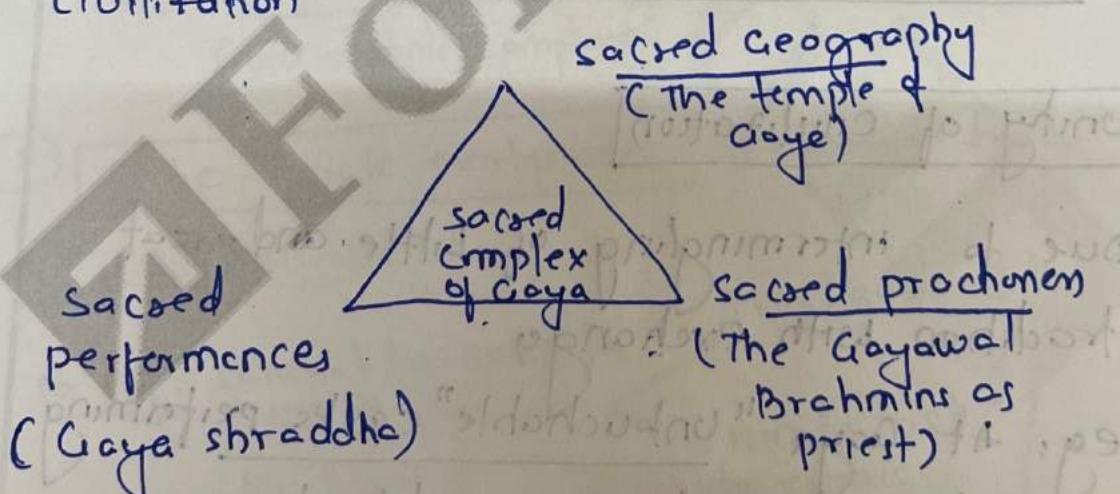 civilization
sacred Geography
(The temple of
Gaya)
sacred
complex
of Gaya
sacred
performances
(Gaya shraddha)
sacred
(The Gayawal
Brahmins as
priest)